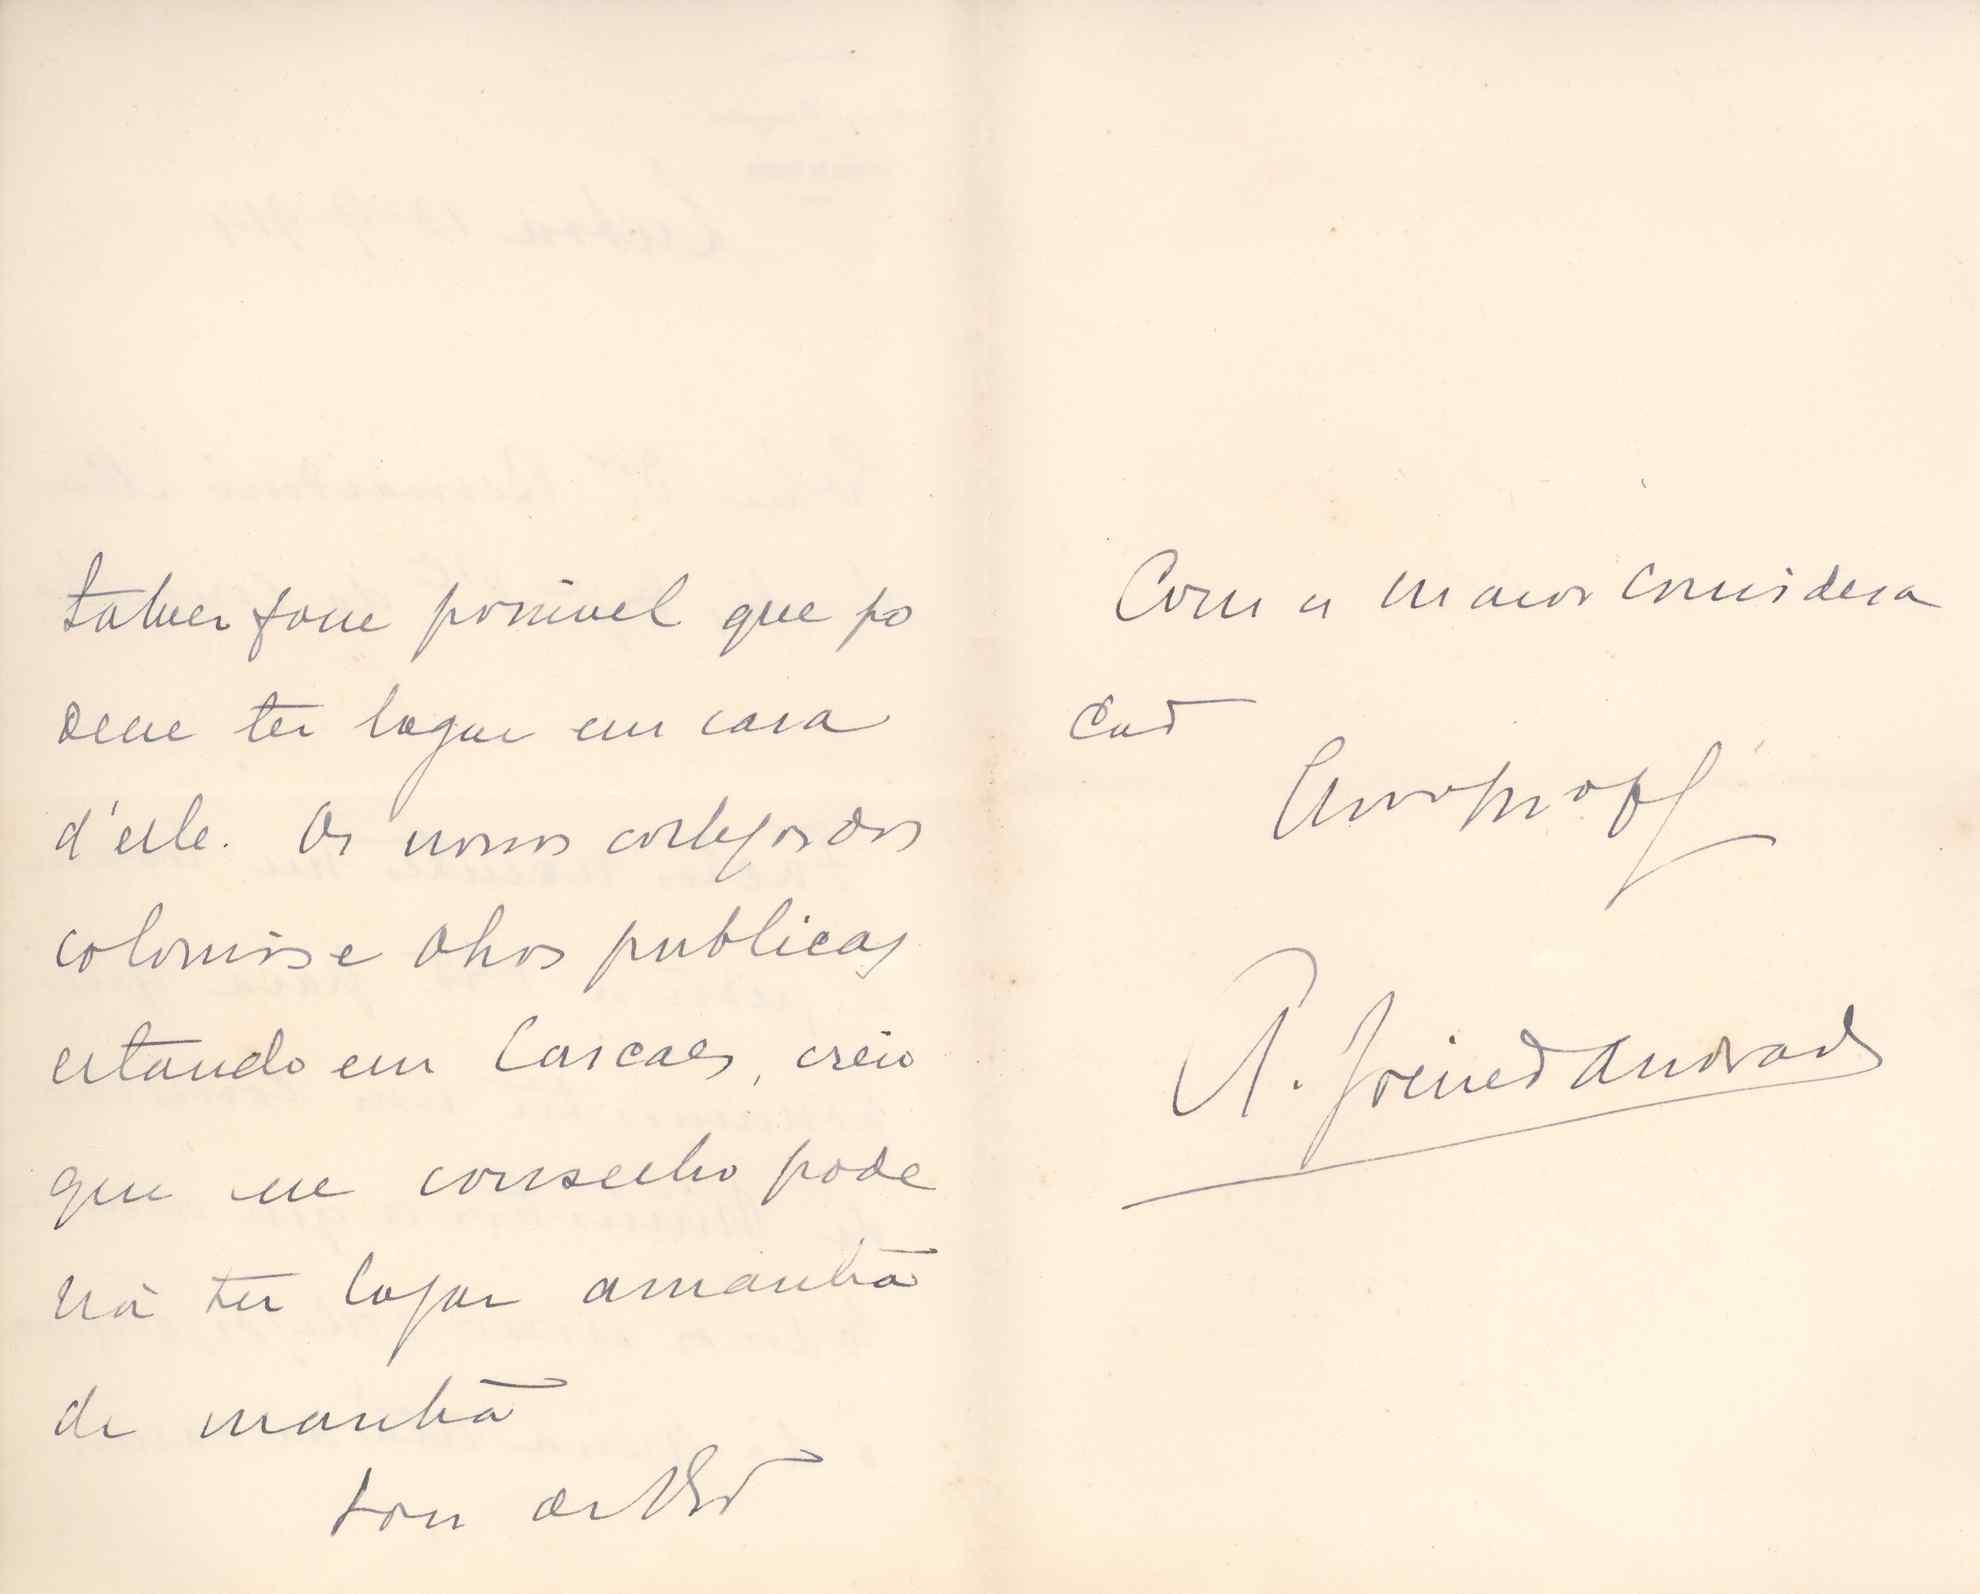 talvez fosse possivel que po
desse ter logar em casa
d'elle. Os nossos collegas das
colonias e obras publicas
estando em Cascaes, creio
que esse conselho pode
ter logar amanhã
de manhã
Sou de V. Exª
Com a maior considera
ção
A. Freire d'Andrade